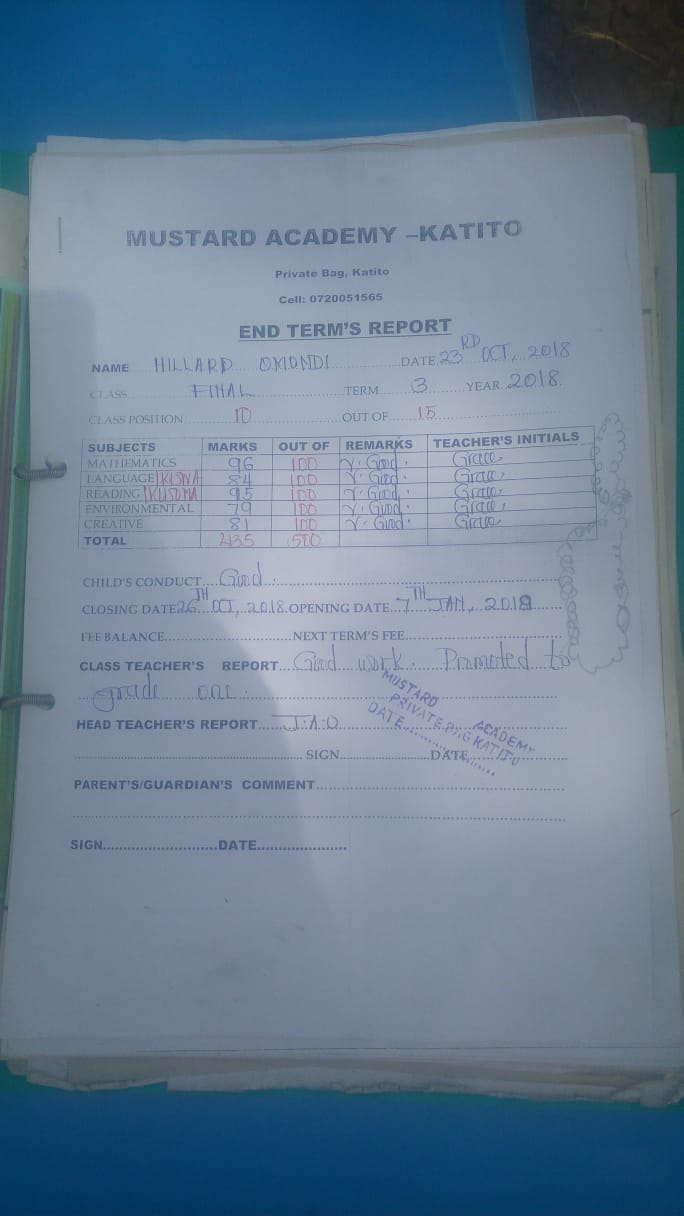 MUSTARD ACADEMY –KATITO
Private Bag, Katito
Cell: 0720051565
END TERM'S REPORT
NAME HILLARD OMONDI DATE 23RD OCT, 2018
CLASS FINAL TERM 3 YEAR 2018
CLASS POSITION 10 OUT OF 15
SUBJECTS MARKS OUT OF REMARKS TEACHER'S INITIALS
MATHEMATICS 96 100 V. Good. Grace.
LANGUAGE KUSWA 84 100 V. Good. Grace.
READING KUSOMA 95 100 V. Good. Grace.
ENVIRONMENTAL 79 100 V. Good. Grace.
CREATIVE 81 100 V. Good. Grace
TOTAL 435 500
CHILD'S CONDUCT Good.
CLOSING DATE 26TH OCT, 2018. OPENING DATE 7TH JAN, 2019
FEE BALANCE NEXT TERM'S FEE
CLASS TEACHER'S REPORT Good work. Promoted to
grade one.
HEAD TEACHER'S REPORT J.A.O
MUSTARD ACADEMY
PRIVATE BAG KATITO
DATE
SIGN DATE
PARENT'S/GUARDIAN'S COMMENT
SIGN DATE